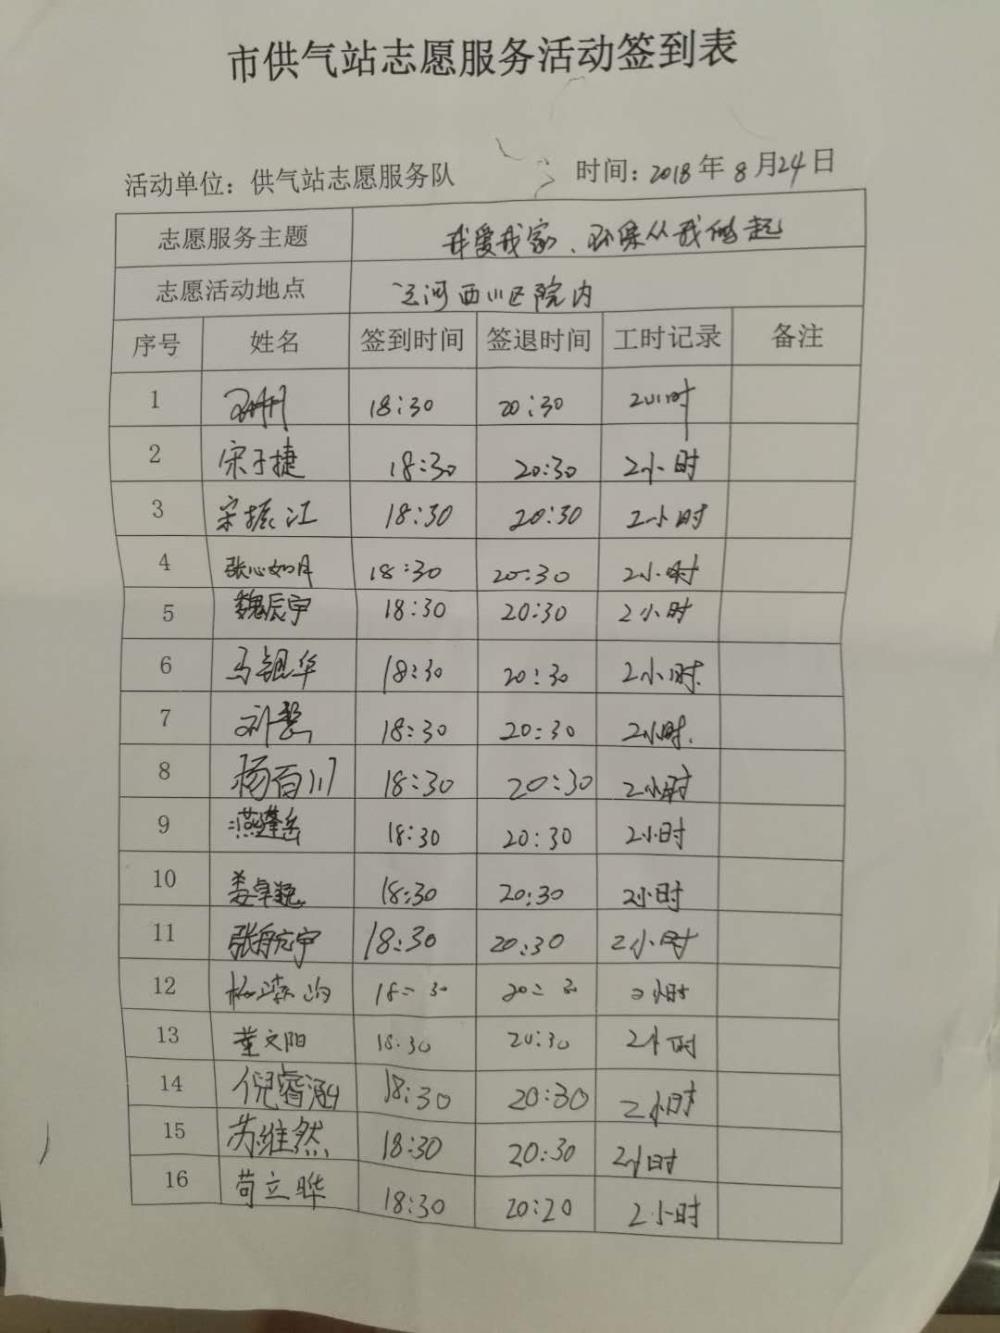 市供气站志愿服务活动签到表
活动单位：供气站志愿服务队 时间：2018年8月24日
志愿服务主题 我爱我家、环保从我做起
志愿活动地点 运河西川区院内
序号 姓名 签到时间 签退时间 工时记录 备注
1 18:30 20:30 2小时
2 宋子捷 18:30 20:30 2小时
3 宋振江 18:30 20:30 2小时
4 张心如月 18:30 20:30 2小时
5 魏辰宇 18:30 20:30 2小时
6 马华 18:30 20:30 2小时
7 18:30 20:30 2小时
8 杨百川 18:30 20:30 2小时
9 18:30 20:30 2小时
10 姜卓 18:30 20:30 2小时
11 张航宇 18:30 20:30 2小时
12 杨 18:30 20:30 2小时
13 董文阳 18:30 20:30 2小时
14 倪睿涵 18:30 20:30 2小时
15 苏维然 18:30 20:30 2小时
16 苟立晔 18:30 20:20 2小时